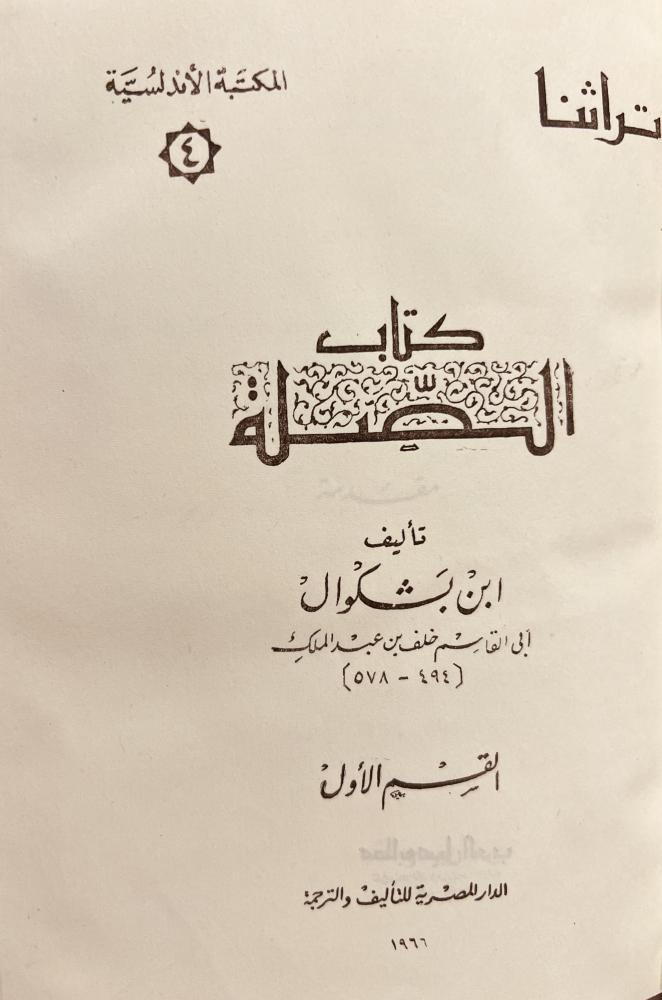 تراثنا
المكتبة الأندلسية
٤
كتاب
الصلة
تأليف
ابن بشكوال
أبى القاسم خلف بن عبد الملك
(٤٩٤ - ٥٧٨)
القسم الأول
الدار المصرية للتأليف والترجمة
١٩٦٦